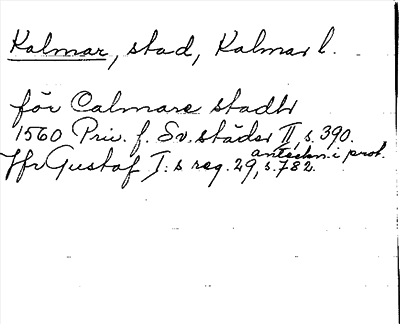 Kalmar, stad, Kalmar l.
för Calmare stadh
1560 Priv. f. Sv. städer II, s. 390.
antekn. i prot.
Jfr Gustaf I:s reg. 29, s. 782.